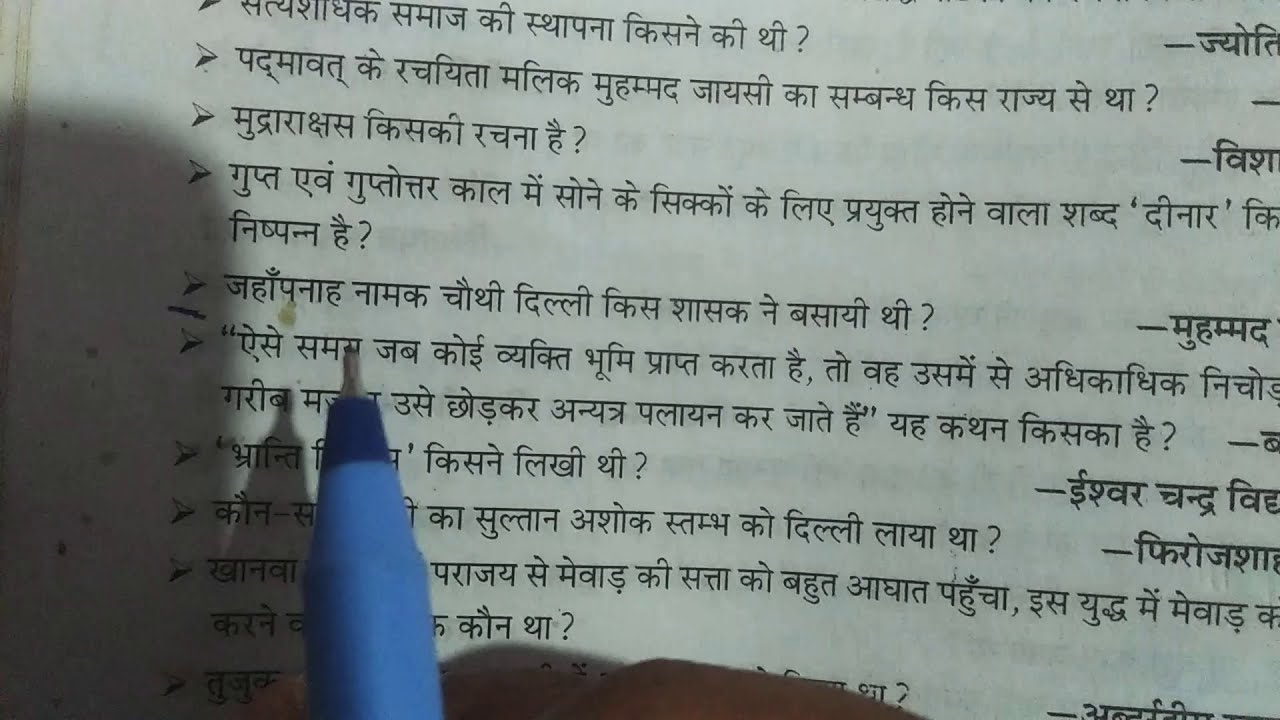 सत्यशोधक समाज की स्थापना किसने की थी ?
—ज्योति
➤ पद्मावत् के रचयिता मलिक मुहम्मद जायसी का सम्बन्ध किस राज्य से था ? —
➤ मुद्राराक्षस किसकी रचना है ?
—विशा
➤ गुप्त एवं गुप्तोत्तर काल में सोने के सिक्कों के लिए प्रयुक्त होने वाला शब्द ‘दीनार’ कि
निष्पन्न है ?
➤ जहाँपनाह नामक चौथी दिल्ली किस शासक ने बसायी थी ?
—मुहम्मद
➤ “ऐसे समय जब कोई व्यक्ति भूमि प्राप्त करता है, तो वह उसमें से अधिकाधिक निचोड़
गरीब उसे छोड़कर अन्यत्र पलायन कर जाते हैं” यह कथन किसका है ? —ब
➤ ‘भ्रान्ति किसने लिखी थी ?
—ईश्वर चन्द्र विद्य
➤ कौन-स का सुल्तान अशोक स्तम्भ को दिल्ली लाया था ?
—फिरोजशाह
➤ खानवा पराजय से मेवाड़ की सत्ता को बहुत आघात पहुँचा, इस युद्ध में मेवाड़ क
करने कौन था ?
➤ तुजुक था ?